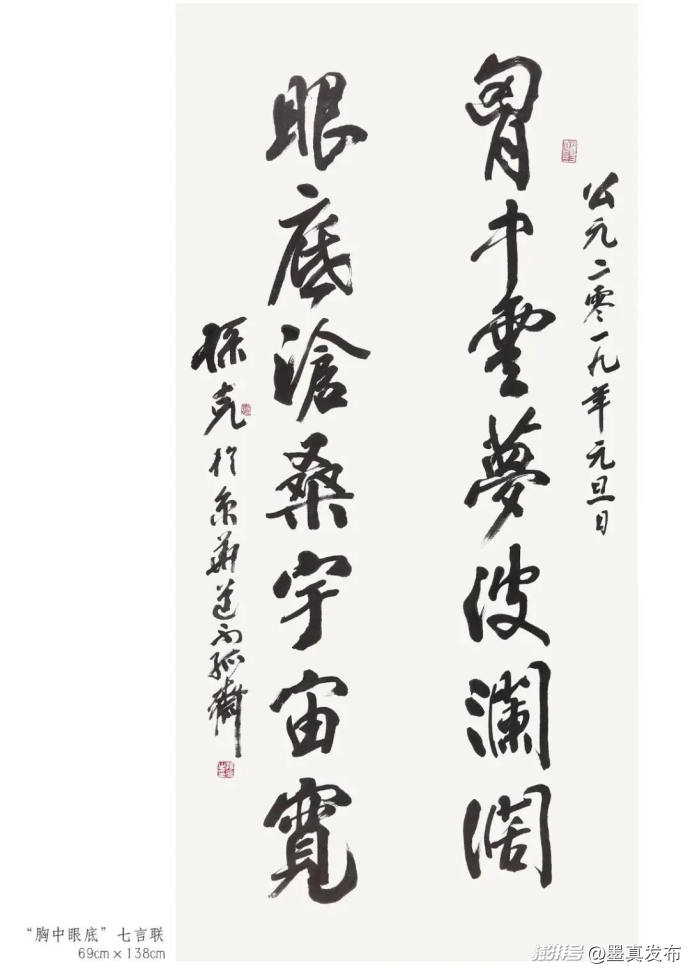 公元二零一九年元旦日
胷中雲夢波瀾闊
眼底滄桑宇宙寬
孫克於京華道不孤齋
“胸中眼底”七言联
69cm×138cm
澎湃号@墨真发布